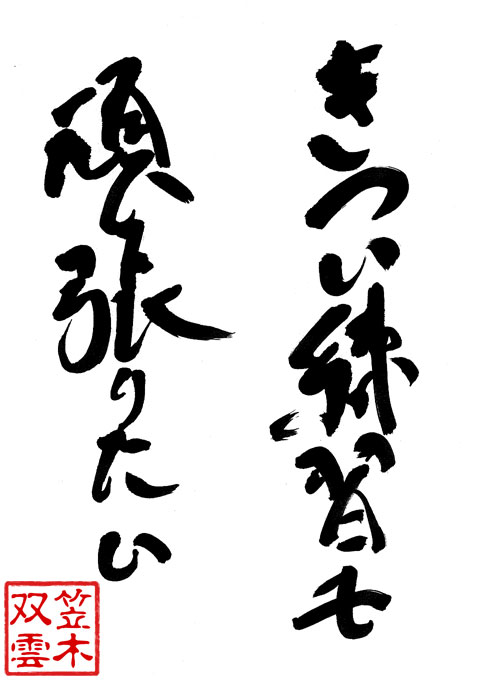 きつい練習も
頑張りたい
笠木
双雲